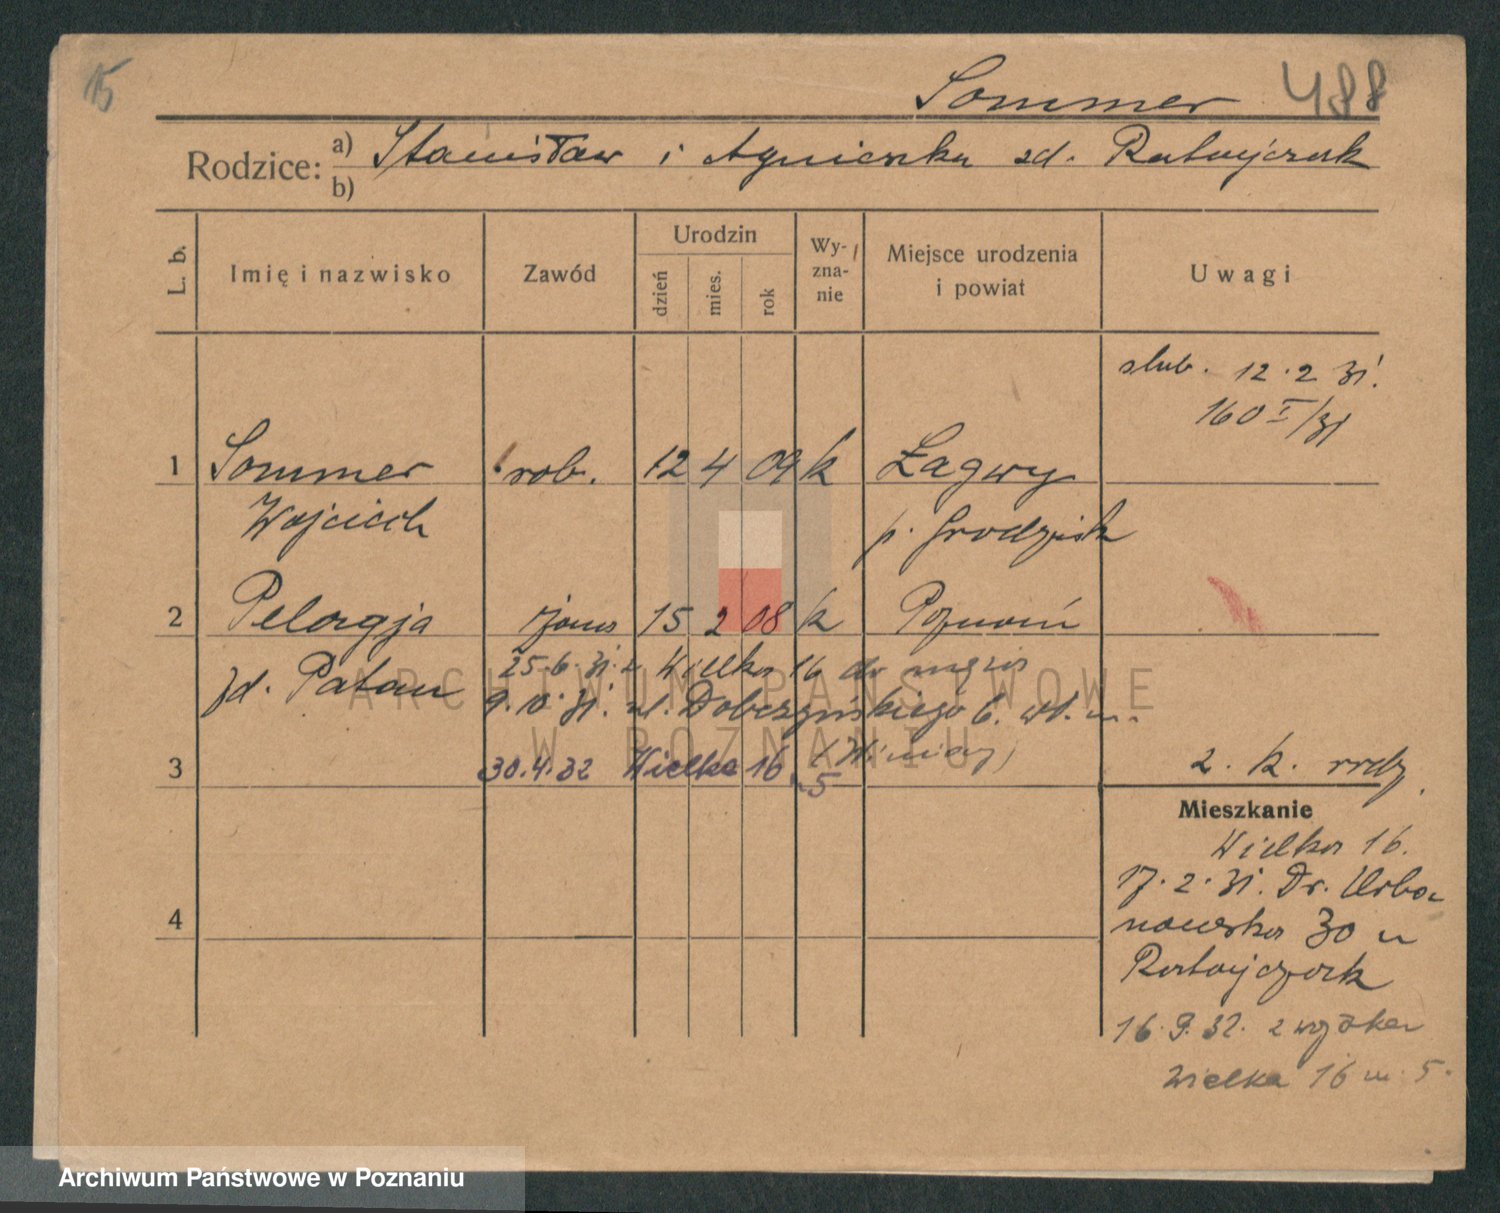 15
Sommer 488
Rodzice: a) Stanisław i Agnieszka zd. Ratajczak
b)
L. b.
Imię i nazwisko
Zawód
Urodzin
dzień
mies.
rok
Wy-
zna-
nie
Miejsce urodzenia
i powiat
Uwagi
slub. 12.2 31.
160 I/31
1 Sommer rob. 12 4 09 k Łagwy
Wojciech p. Grodzisk
2 Pelagja żona 15 2 08 k Poznań
zd. Patan
25.6.31. z Wielka 16 do męża
9.10.31. ul. Dobczyńskiego 6. wł. m.
(Winiary)
3 30.4.32 Wielka 16 m 5
2. k.
Mieszkanie
Wielka 16.
17.2.31. Dr. Urba
nowska 30 u
Ratajczak
4
16.9.32. z wojska
Wielka 16 m. 5.
ARCHIWUM PAŃSTWOWE
W POZNANIU
Archiwum Państwowe w Poznaniu